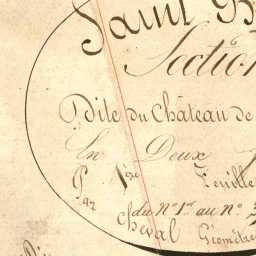 Saint
Section
Dite du Château de
En Deux
1ère Feuille
du N° 1er au N°
Par Cheval Géomètre